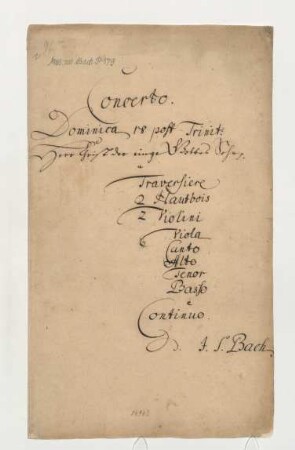 Mus. ms. Bach St 479
Concerto.
Dominica 18 post Trinit:
Herr Christ der einge Gottes Sohn,
a
Traversiere
2 Hautbois
2 Violini
Viola
Canto
Alto
Tenor
Basso
è
Continuo.
J. S. Bach